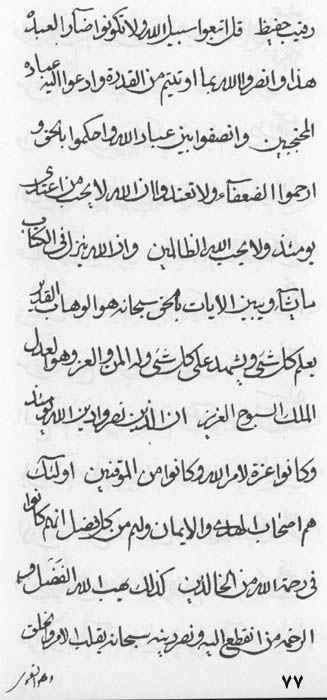 رقيب حفيظ قل اتبعوا سبيل الله ولا تكونوا ضآر العبد
هذا وانصروا الله بما اوتيتم من القدرة وادعوا اليه عباد
المحتجبين وانصفوا بين عباد الله واحكموا بالحق و
ارحموا الضعفآء ولا تعتدوا ان الله لا يحب من اعتدى
يومئذ ولا يحب الله الظالمين وان الله ينزل فى الكتاب
ما يشآء ويبين الايات بالحق سبحانه هو الوهاب القدير
يعلم كل شئ ويشهد على كل شئ وله المن والعز وهو العدل
الملك السبوح العزيز ان الذين نصروا دين الله يومئذ
وكانوا عزة لامر الله وكانوا من الموقنين اولئك
هم اصحاب الهدى والايمان ولهم من كل فضل انهم كانوا
فى رحمة الله من الخالدين كذلك يهب الله الفضل و
الرحمة من انقطع اليه ونصر دينه سبحانه يقلب الامر والخلق
وهو القوى
٧٧